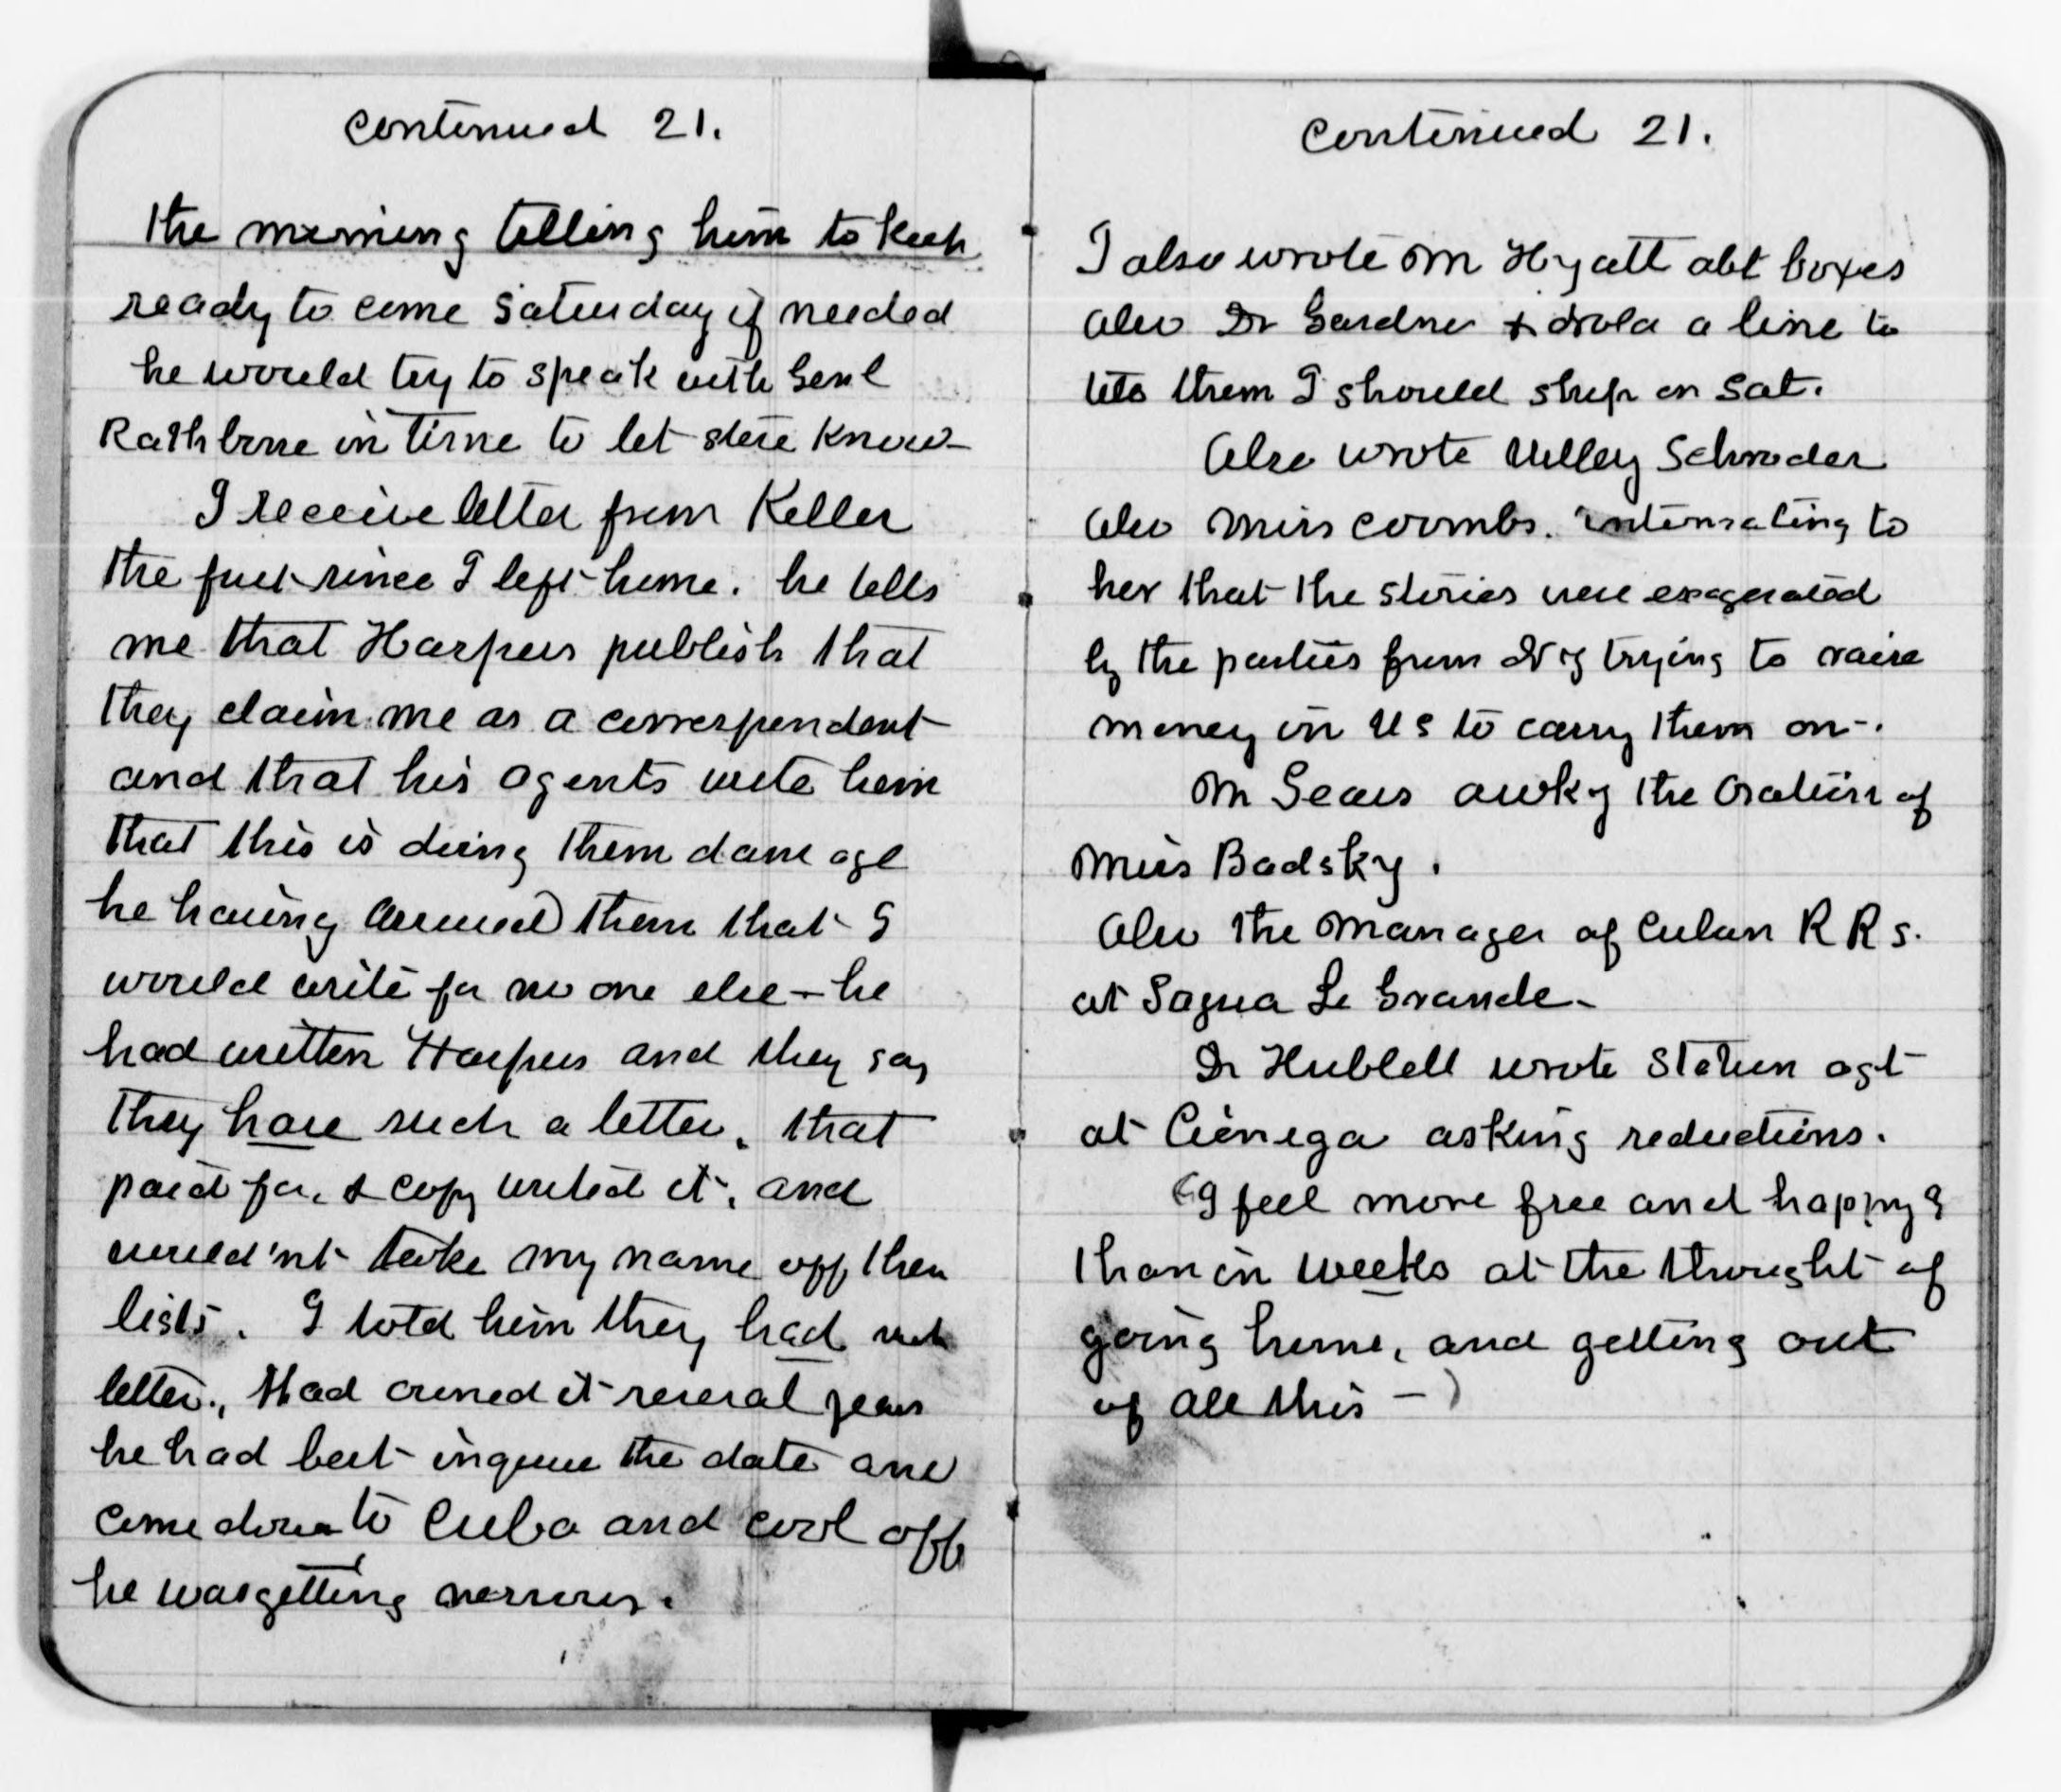 continued 21.
the morning telling him to keep
ready to come Saturday if needed
he would try to speak with Genl
Rathbone in time to let steve know
I receive letter from Keller
the first since I left home. he tells
me that Harpers publish that
they claim me as a correspondent
and that his agents write him
that this is doing them damage
he having assured them that I
would write for no one else - he
had written Harpers and they say
they have such a letter, that
paid for, & copy writed it, and
would'nt take my name off their
lists. I told him they had such
letter., Had owned it several years
he had best inquire the date and
come down to Cuba and cool off
he was getting nervous.
continued 21.
I also wrote Mr Hyatt abt boxes
also Dr Gardner & a line to
them I should ship on Sat.
Also wrote Schroder
also Miss Coombs. intimating to
her that the stories were exagerated
by the parties from N Y trying to raise
money in U S to carry them on -.
Mr Sears awkg the Oration of
Miss Badsky.
Also the Manager of Cuban R R s.
at Sagua Le Grande -
Dr Hubbell wrote Station agt
at Cienega asking reductions.
(I feel more free and happy
than in weeks at the thought of
going home, and getting out
of all this - )